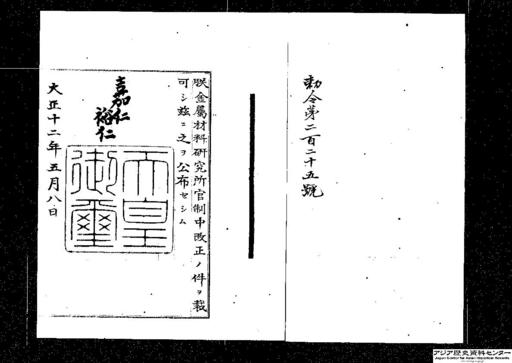 勅令第二百二十五號
朕金屬材料研究所官制中改正ノ件ヲ裁
可シ玆ニ之ヲ公布セシム
嘉仁
裕仁
天皇
御璽
大正十二年五月八日
アジア歴史資料センター
Japan Center for Asian Historical Records